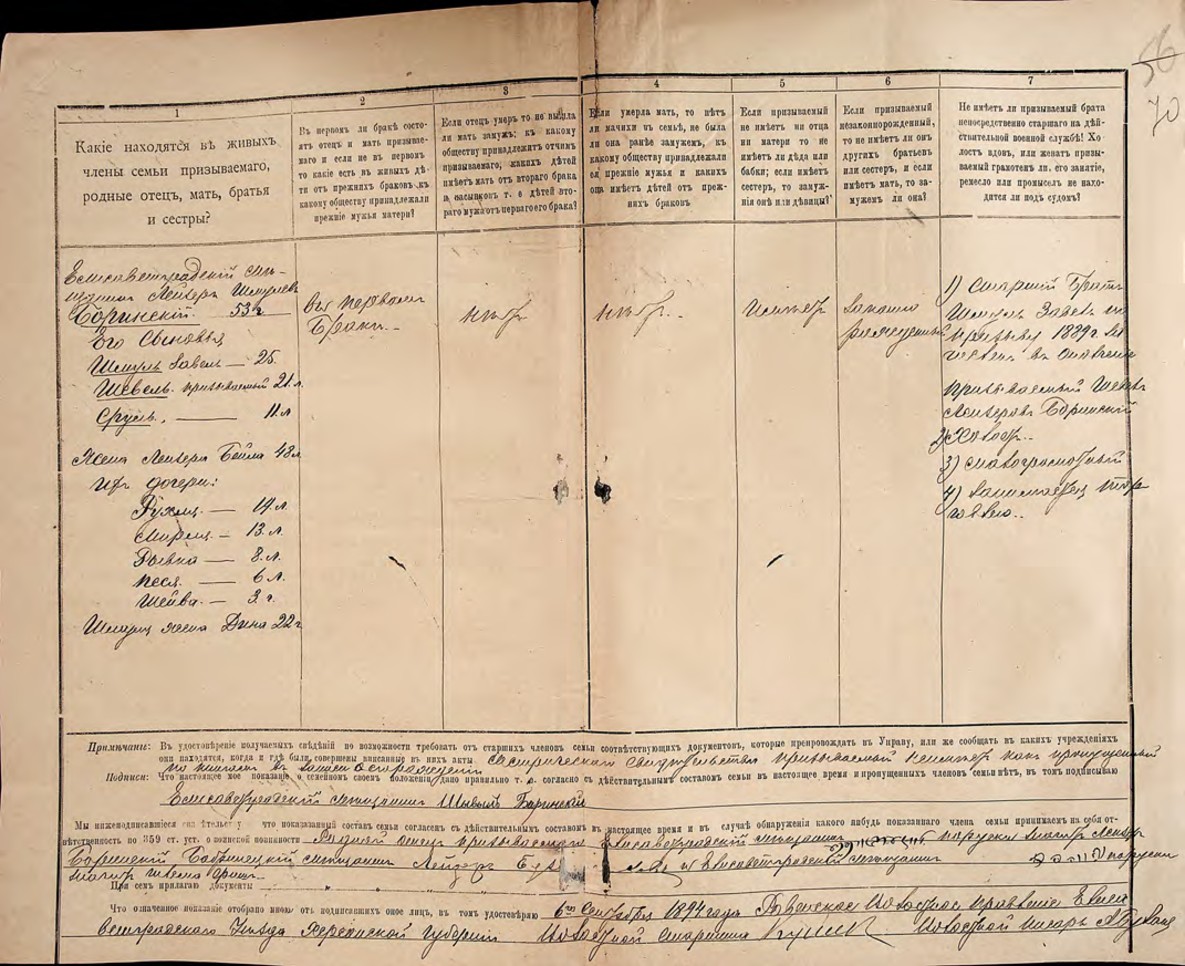 56
70
1
2
3
4
5
6
7
Какіе находятся въ живыхъ
члены семьи призываемаго,
родные отецъ, мать, братья
и сестры?
Въ первомъ ли бракѣ состо-
ятъ отецъ и мать призывае-
маго и если не въ первомъ
то какіе есть въ живыхъ дѣ-
ти отъ прежнихъ браковъ къ
какому обществу принадлежали
прежніе мужья матери?
Если отецъ умеръ то не вышла
ли мать замужъ; къ какому
обществу принадлежитъ отчимъ
призываемаго; какихъ дѣтей
имѣетъ мать отъ втораго брака
и пасынков т. е дѣтей вто-
раго мужа отъ перваго его брака?
Если умерла мать, то нѣтъ
ли мачихи въ семьѣ, не была
ли она ранѣе замужемъ, къ
какому обществу принадлежали
ея прежніе мужья и какихъ
она имѣетъ дѣтей отъ преж-
нихъ браковъ
Если призываемый
не имѣетъ ни отца
ни матери то не
имѣетъ ли дѣда или
бабки; если имѣетъ
сестеръ, то замуж-
нія онѣ или дѣвицы?
Если призываемый
незаконнорожденный,
то не имѣетъ ли онъ
другихъ братьевъ
или сестръ, и если
имѣетъ мать, то за-
мужемъ ли она?
Не имѣетъ ли призываемый брата
непосредственно старшаго на дѣй-
ствительной военной службѣ! Хо-
лостъ вдовъ, или женатъ призы-
ваемый грамотенъ ли, его занятіе,
ремесло или промыселъ не нахо-
дится ли подъ судомъ?
Елисаветградскій мѣ-
щанинъ Лейзеръ Шмулевъ
Боринскій. 53 г
Его сыновья
Шмуль Завель — 25.
Шевель. призываемый 21 л.
Сруль. — 11 л
Жена Лейзера Бейла 48 л
Ихъ дочери:
Рухля. — 14 л.
— 13. л.
Рывка — 8. л.
Песя. — 6 л.
Шейва. — 3. г.
жена Дина 22 г
Въ первомъ
Бракѣ..
нѣтъ
нѣтъ..
Законно
рожденный
1) Старшій Братъ
Шмуль Завель по
призыву 1889 г
въ ополченіе
призываемый Шевель
Лейзеровъ Боринскій
2) Холостъ..
3) малограмотный
4) Занимается тор
говлею..
Примѣчаніе: Въ удостовѣреніе получаемыхъ свѣдѣній по возможности требовать отъ старшихъ членовъ семьи соотвѣтствующихъ документовъ, которые препровождать въ Управу, или же сообщать въ какихъ учрежденіяхъ
они находятся, когда и гдѣ были совершены вписанные въ нихъ акты призываемый какъ пропущенный
по книгамъ
Подписи: Что настоящее мое показаніе о семейномъ своемъ положеніи дано правильно т. е. согласно съ дѣйствительнымъ составомъ семьи въ настоящее время и пропущенныхъ членовъ семьи нѣтъ, въ томъ подписываю
Елисаветградскій мѣщанинъ Боринскій
Мы нижеподписавшіеся что показанный составъ семьи согласенъ съ дѣйствительнымъ составомъ въ настоящее время и въ случаѣ обнаруженія какого нибудь показаннаго члена семьи принимаемъ на себя от-
вѣтственность по 359 ст. уст. о воинской повинности Родной отецъ призываемаго Елисаветградскій мѣщанинъ порусски Лейзеръ
Боринскій, Бобринецкій мѣщанинъ Лейзеръ и Елисаветградскій мѣщанинъ порусски
При семъ прилагаю документы
Что означенное показаніе отобрано мною отъ подписавшихъ оное лицъ, въ томъ удостовѣряю 6го Сентября 1894 года Волостное правленіе Елиса
ветградскаго Уѣзда Херсонской Губерніи Волостной Старшина Волостной писарь